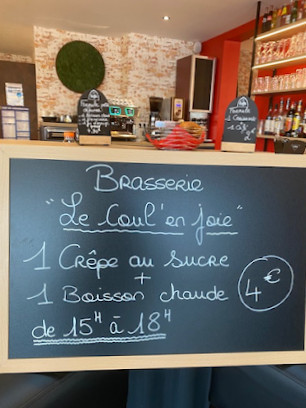 Brasserie
"Le Coul'en joie"
1 Crêpe au sucre
+
1 Boisson chaude
4€
de 15H à 18H
Formule
1 Croissant